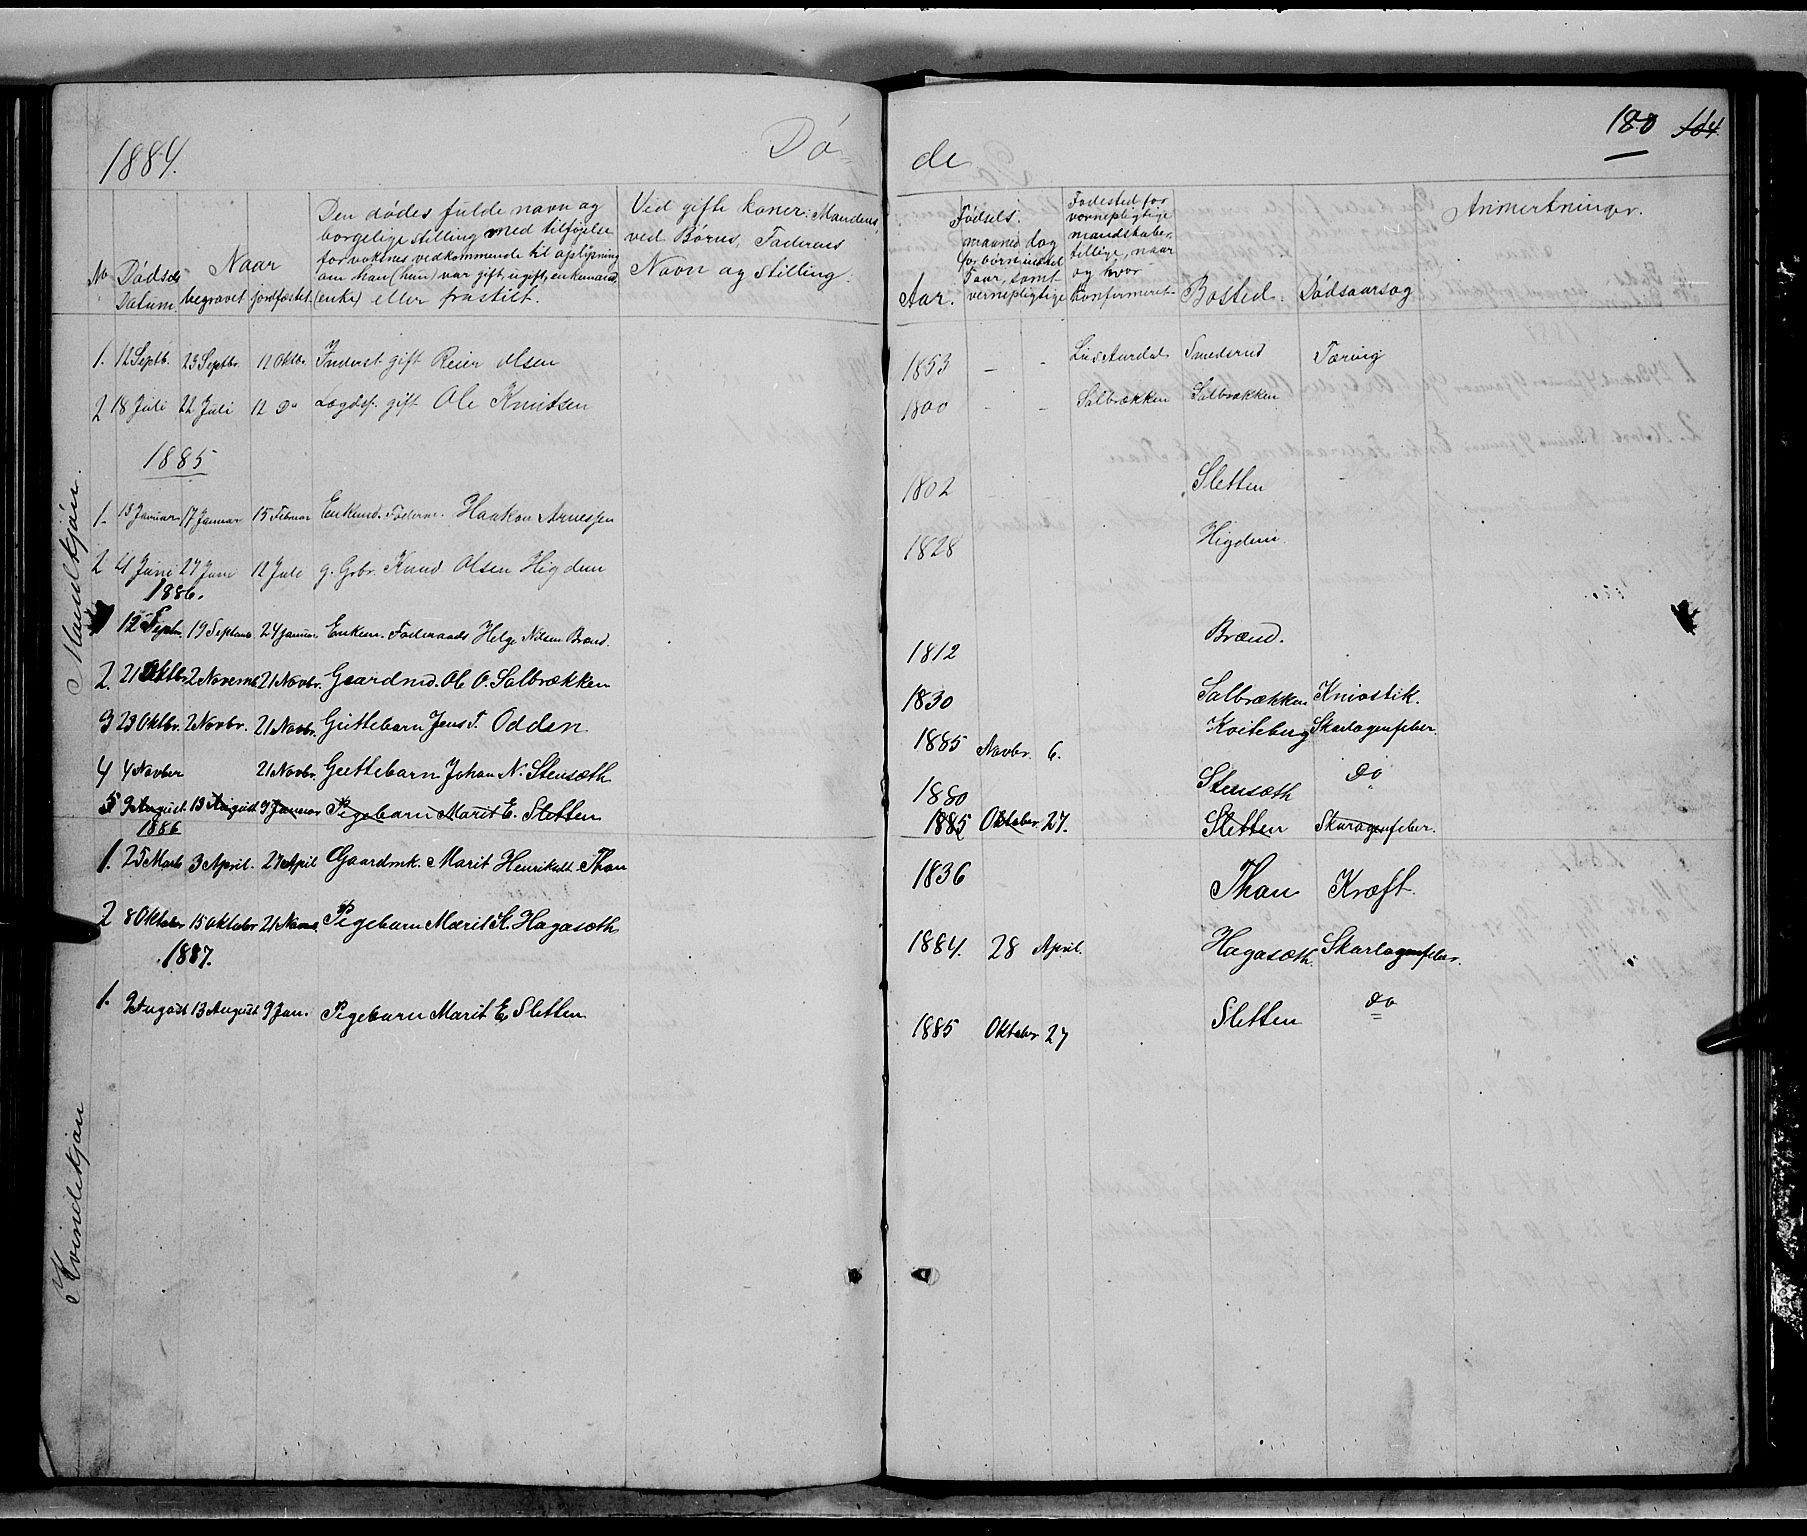 1884. Dø- de 180 184
No
Dødsds Datum.
Naar
begravet jordfæstet.
Den dødes fulde navn og
borgelige stilling med tilføielse
for voksnes vedkommende til oplysning
om han (hun) var gift, ugift, enkemand,
(enke) eller fraskilt.
Ved gifte koner: Mandens,
ved Børns, Faderens
Navn og stilling.
Aar.
Fødsels.
maaned dag
for børn indtil
1 aar, samt
vernepligtige
Fødested for
vornepligtige
mandskaber
tillige, naar
og hvor
Konfirmeret.
Bosted.
Dødsaarsag
Anmerkninger.
Mandkjøn.
1. 12 Septb. 23 Septbr. 12 Oktbr. Inderst gift Reier Olsen 1853 - - Lils Aurdal Smederud Tæring
2 18 Juli 22 Juli 12 Do Lægdsf. gift Ole Knutsen 1800 - - Salbrækken Salbrækken
1885
1. 13 Januar 17 Januar 15 Februar Enkemd. Føderm. Haakon Arnessen 1802 Sletten
2 21 Juni 27 Juni 12 Juli g. Grbr. Knud Olsen Higden 1828 Higden
1886.
1 12 Septr. 19 Septemb 24 Januar Enkem. Føderaads Helge Nilsen Brænd. 1812 Brænd.
2. 21 Oktbr. 2 Novemb. 21 Novbr. Gaardmd. Ole O. Salbrækken 1830 Salbrækken Knivstik.
3 23 Oktbr. 2 Novbr. 21 Novbr. Guttebarn Jens T. Odden 1885 Novbr. 6. Kviteberg Skarlagensfeber
4 4 Novber 21 Novbr. Guttebarn Johan N. Stensæth 1880 Stensæth do
5 9 August. 13 August 9 Januar Pigebarn Marit E. Sletten 1885 Oktober 27. Sletten Skaragensfeber.
Kvindekjøn
1886
1. 25 Marts 3 April. 27 April Gaardmk. Marit Henriksdt. Thon 1836 Thon Kræft.
2 8 Oktober 15 Oktober 21 Novb. Pigebarn Marit K. Hagasæth 1884. 28 April. Hagasæth. Skarlagensfeber.
1887.
1. 9 August 13 August 9 Jan. Pigebarn Marit E. Sletten 1885 Oktober 27 Sletten do